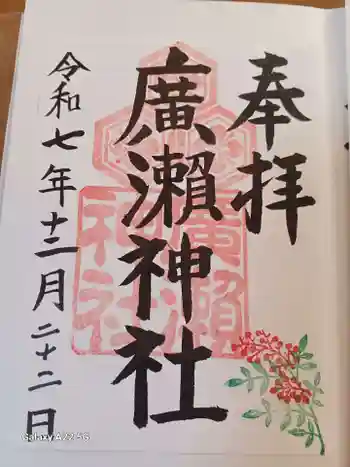 奉拝
廣瀨神社
令和七年十二月二十二日
廣瀨
神社
Galaxy A22 5G